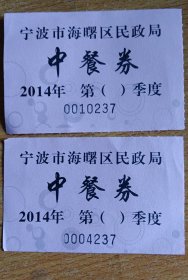 宁波市海曙区民政局
中餐券
2014年 第( )季度
0010237
宁波市海曙区民政局
中餐券
2014年 第( )季度
0004237